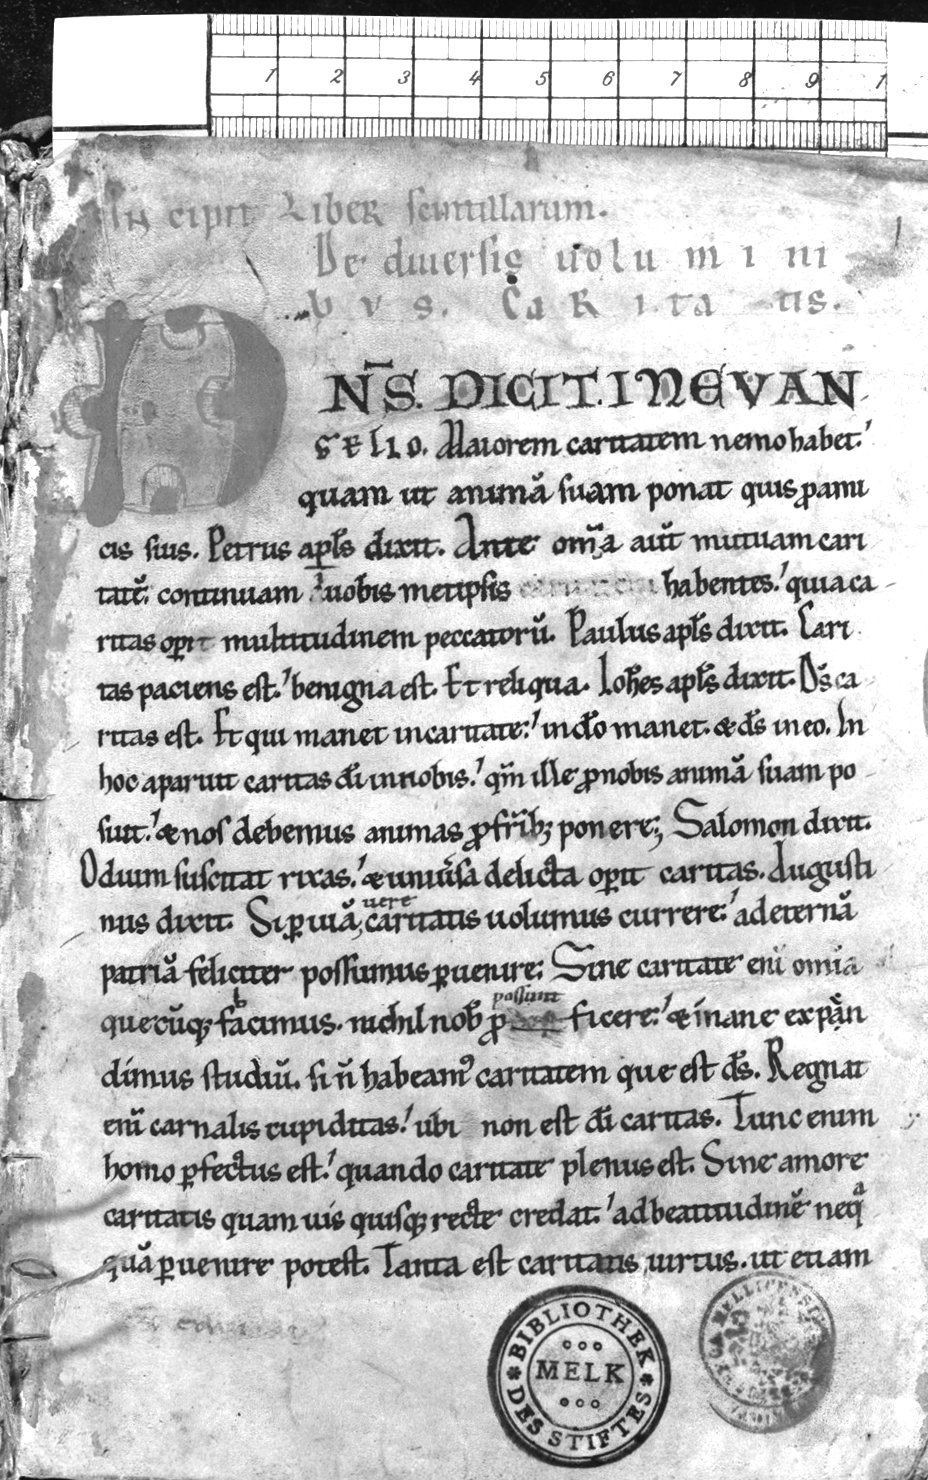 1 2 3 4 5 6 7 8 9 1
In cipit Liber scintillarum.
De diuersis uolu m i ni
b v s. Ca R i ta tis.
DN̄S. DICIT. IN EVAN
GELIO. Maiorem caritatem nemo habet.
quam ut animā suam ponat quis ꝓ ami
cis suis. Petrus apl̄s dixit. Ante om̄a aūt mutuam cari
tatē continuam uobis metipsis habentes. quia ca
ritas oꝑit multitudinem peccatorū. Paulus apl̄s dixit. Cari
tas paciens est. benigna est. Et reliqua. Ioh̄es apl̄s dixit. Ds̄ ca
ritas est. Et qui manet in caritate. in dō manet. & ds̄ in eo. In
hoc aparuit caritas dī in nobis. qm̄ ille ꝓ nobis animā suam po
suit. & nos debemus animas ꝓ fr̄ibꝫ ponere; Salomon dixit.
Odium suscitat rixas. & uniūsa delicta oꝑit caritas. Augusti
nus dixit. Si ꝑ uiā uere caritatis uolumus currere. ad eternā
patriā feliciter possumus ꝑuenire; Sine caritate enī omīa
quecūqꝫ facimus. nichil nob̄ ꝓ possunt ficere. & inane expan
dimus studiū. si n̄ habeamꝰ caritatem que est ds̄. Regnat
enī carnalis cupiditas. ubi non est dī caritas. Tunc enim
homo ꝑfectus est. quando caritate plenus est. Sine amore
caritatis quam uis quisqꝫ recte credat. ad beatitudinē neq
quā ꝑuenire potest. Tanta est caritatis uirtus. ut etiam
BIBLIOTHEK
MELK
DES STIFTES